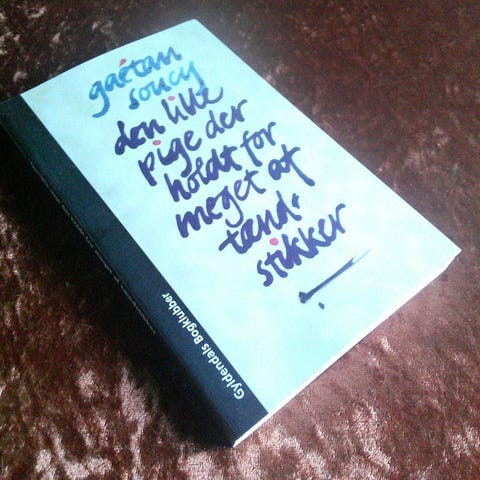 gaétan
soucy
den lille
pige der
holdt for
meget af
tænd·
stikker
Gyldendals Bogklubber